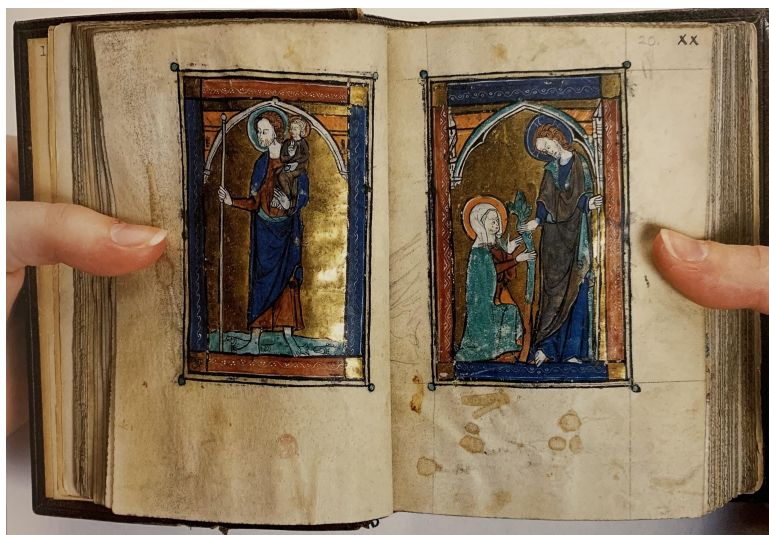 20. XX